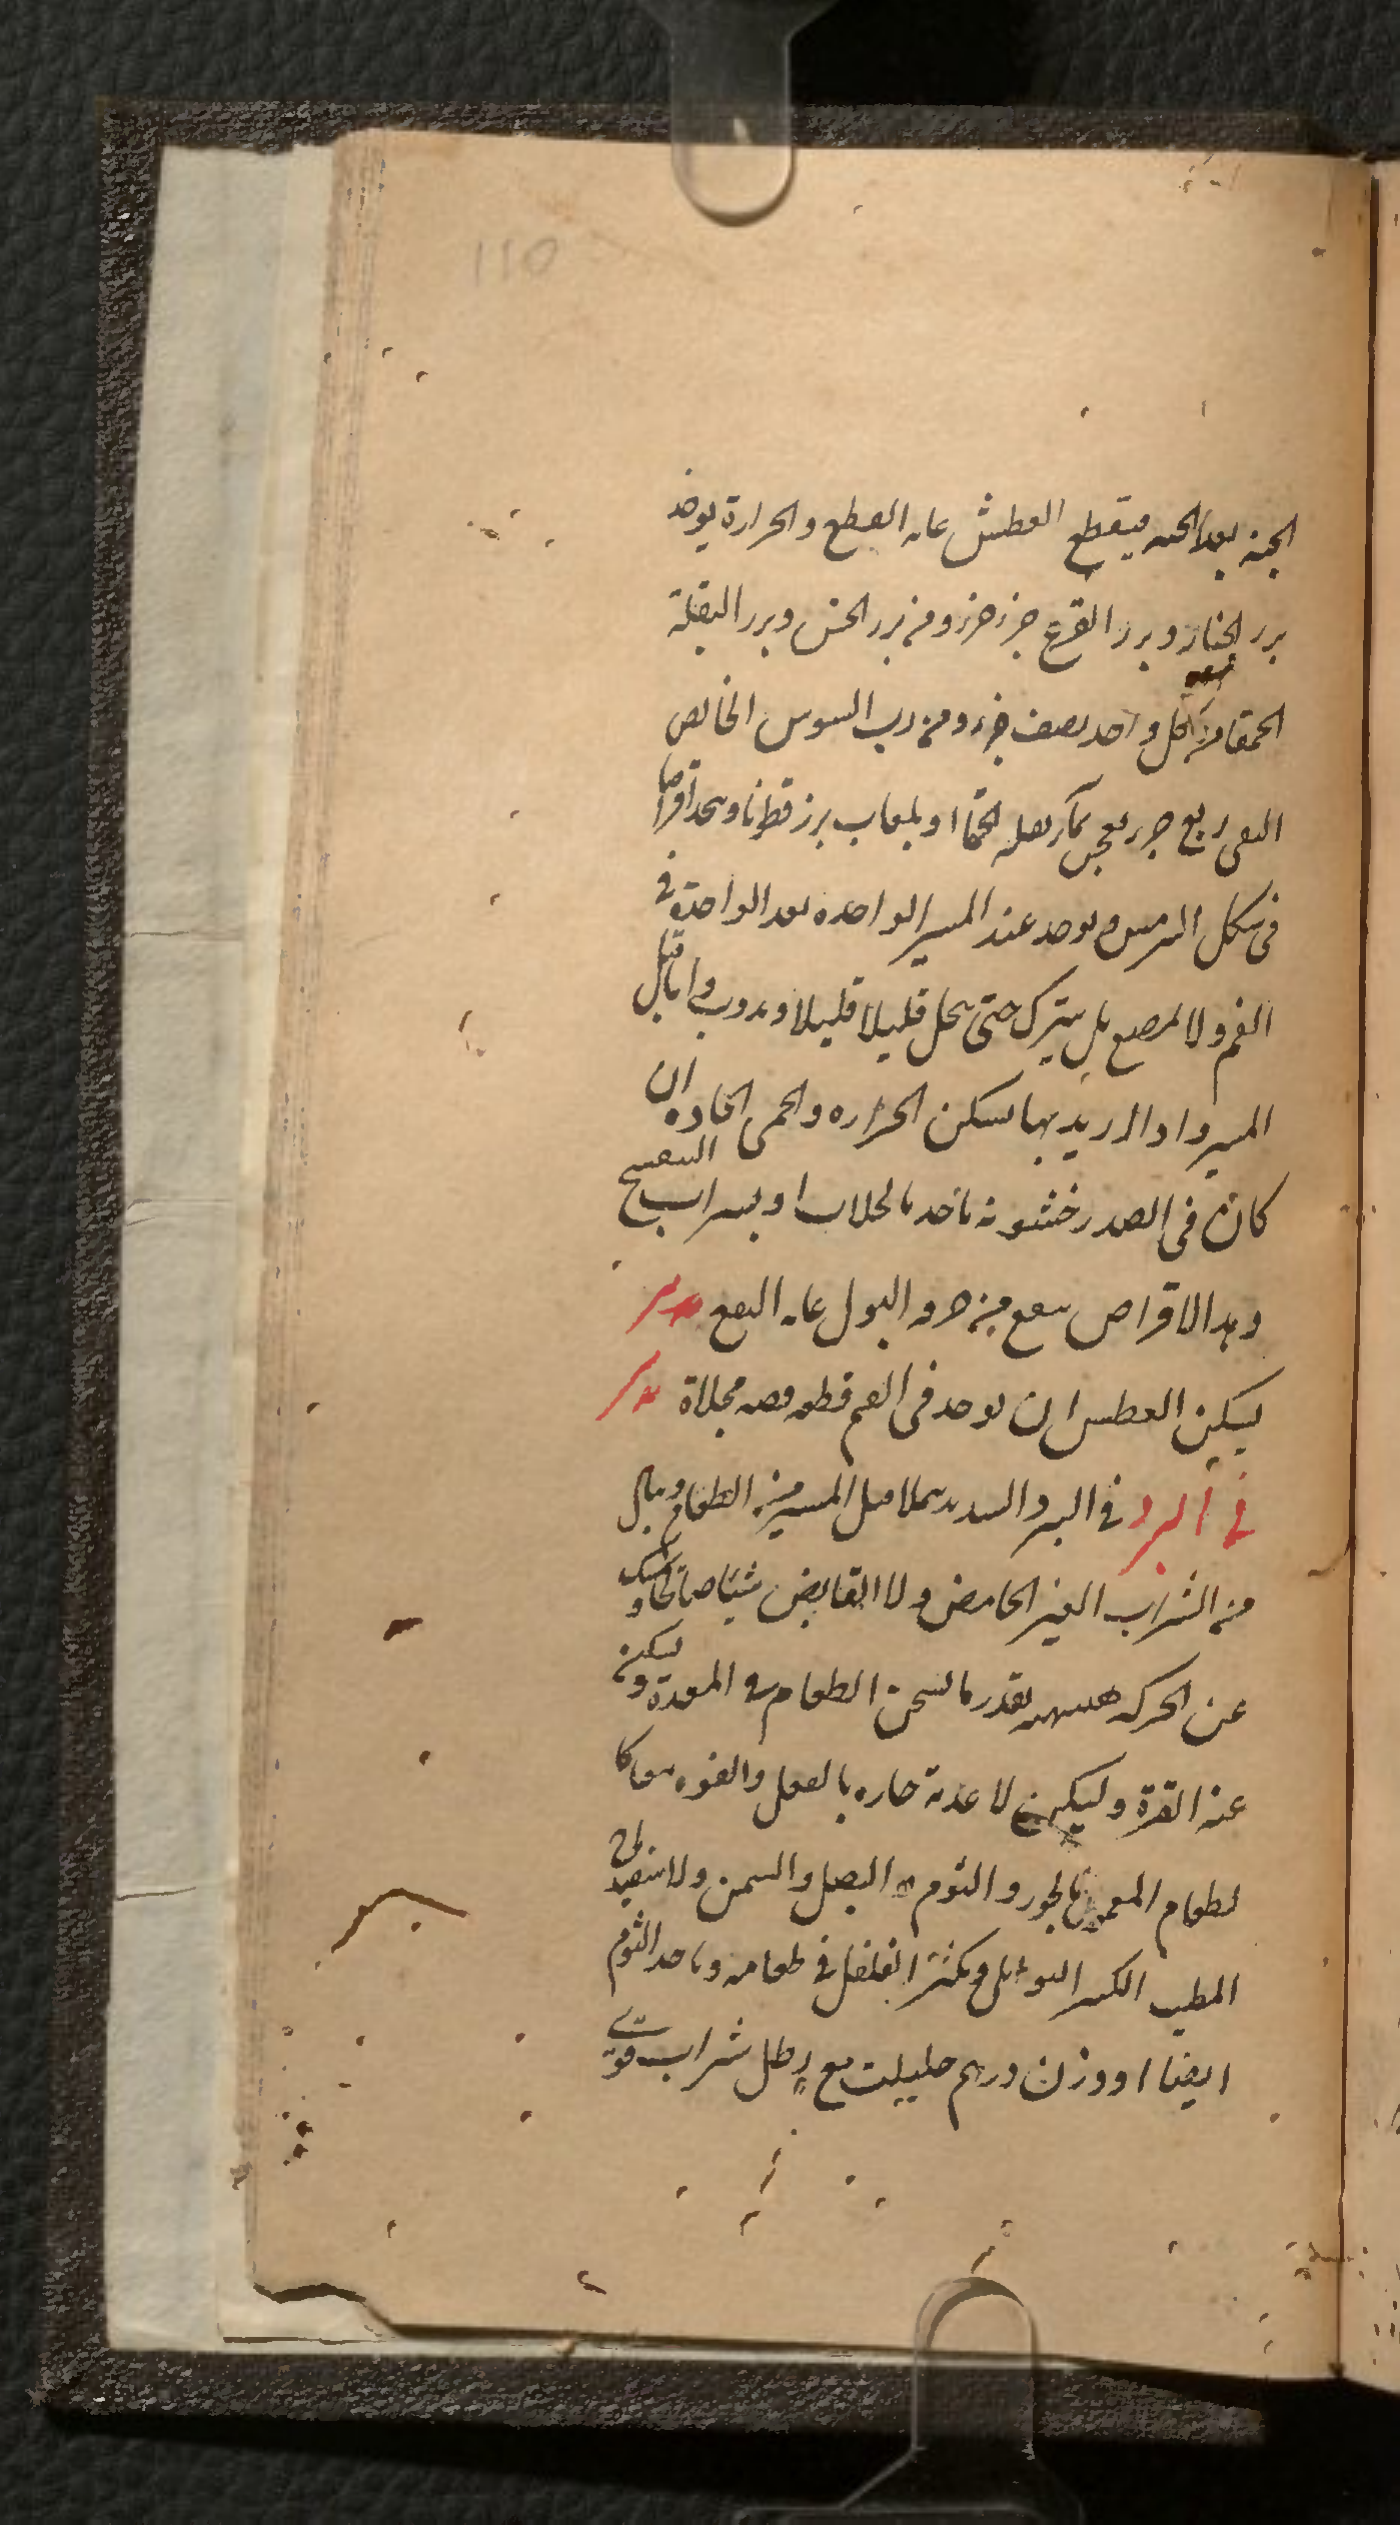 110
الحبة بعد الحبه فيقطع العطش غايه القطع والحرارة يوخذ
بزر الخيار وبزر القرع جزء جزء ومن بزر الخس وبزر البقلة
الحمقا من كل واحد نصف جزء ومن رب السوس الخالص
النقى ربع جزء يعجن بماء بقله الحمقا او بلعاب بزر قطونا ويتخذ اقراصا
فى شكل الترمس ويوخذ عند المسير الواحده بعد الواحدة فى
الفم ولا تمضغ بل يترك حتى تنحل قليلا قليلا وتدوب واياك قبل
المسير واذا اريد بها تسكن الحراره والحمى الحاده ان
كان فى الصدر خشونه تاخذ بالجلاب او بشراب البنفسج
وهذا الاقراص تنفع من حرقه البول غايه النفع
يسكن العطش ان يوخذ فى الفم قطعه فضه مجلاة
فى البرد فى البرد الشديد يتملا قبل المسير من الطعام وينال
من الشراب الغير الحامض ولا القابض شيئا صالحا ويمسك
عن الحركه هنيهه بقدر ما يسخن الطعام فى المعدة ويسكن
عنه القرة وليكن لاغذية حاره بالفعل والقوه معا كا
لطعام المعمول بالجوز والثوم والبصل والسمن ولاسفيدباج
المطيب الكثير التوابل ويكثر الفلفل فى طعامه وياخذ الثوم
ايضا او وزن درهم حليلت مع رطل شراب قوى